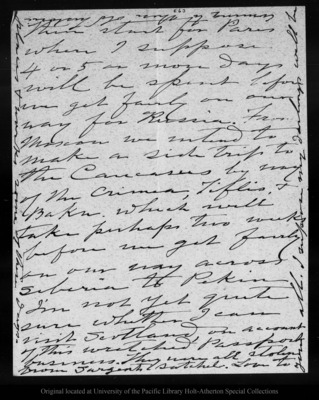 663
then start for Paris
where I suppose
4 or 5 or more days
will be spent before
we get fairly on our
way for Russia. From
Moscow we intend to
make a side trip to
the Caucasus by way
of the Crimea, Tiflis, &
Baku, which will
take perhaps two weeks
before we get fairly
on our way across
Siberia to Pekin
I'm not yet quite
sure whether I can
visit Scotland on account
of this wretched Passport
business. They were all stolen
from Sargent's satchel. Love to
Original located at University of the Pacific Library Holt-Atherton Special Collections